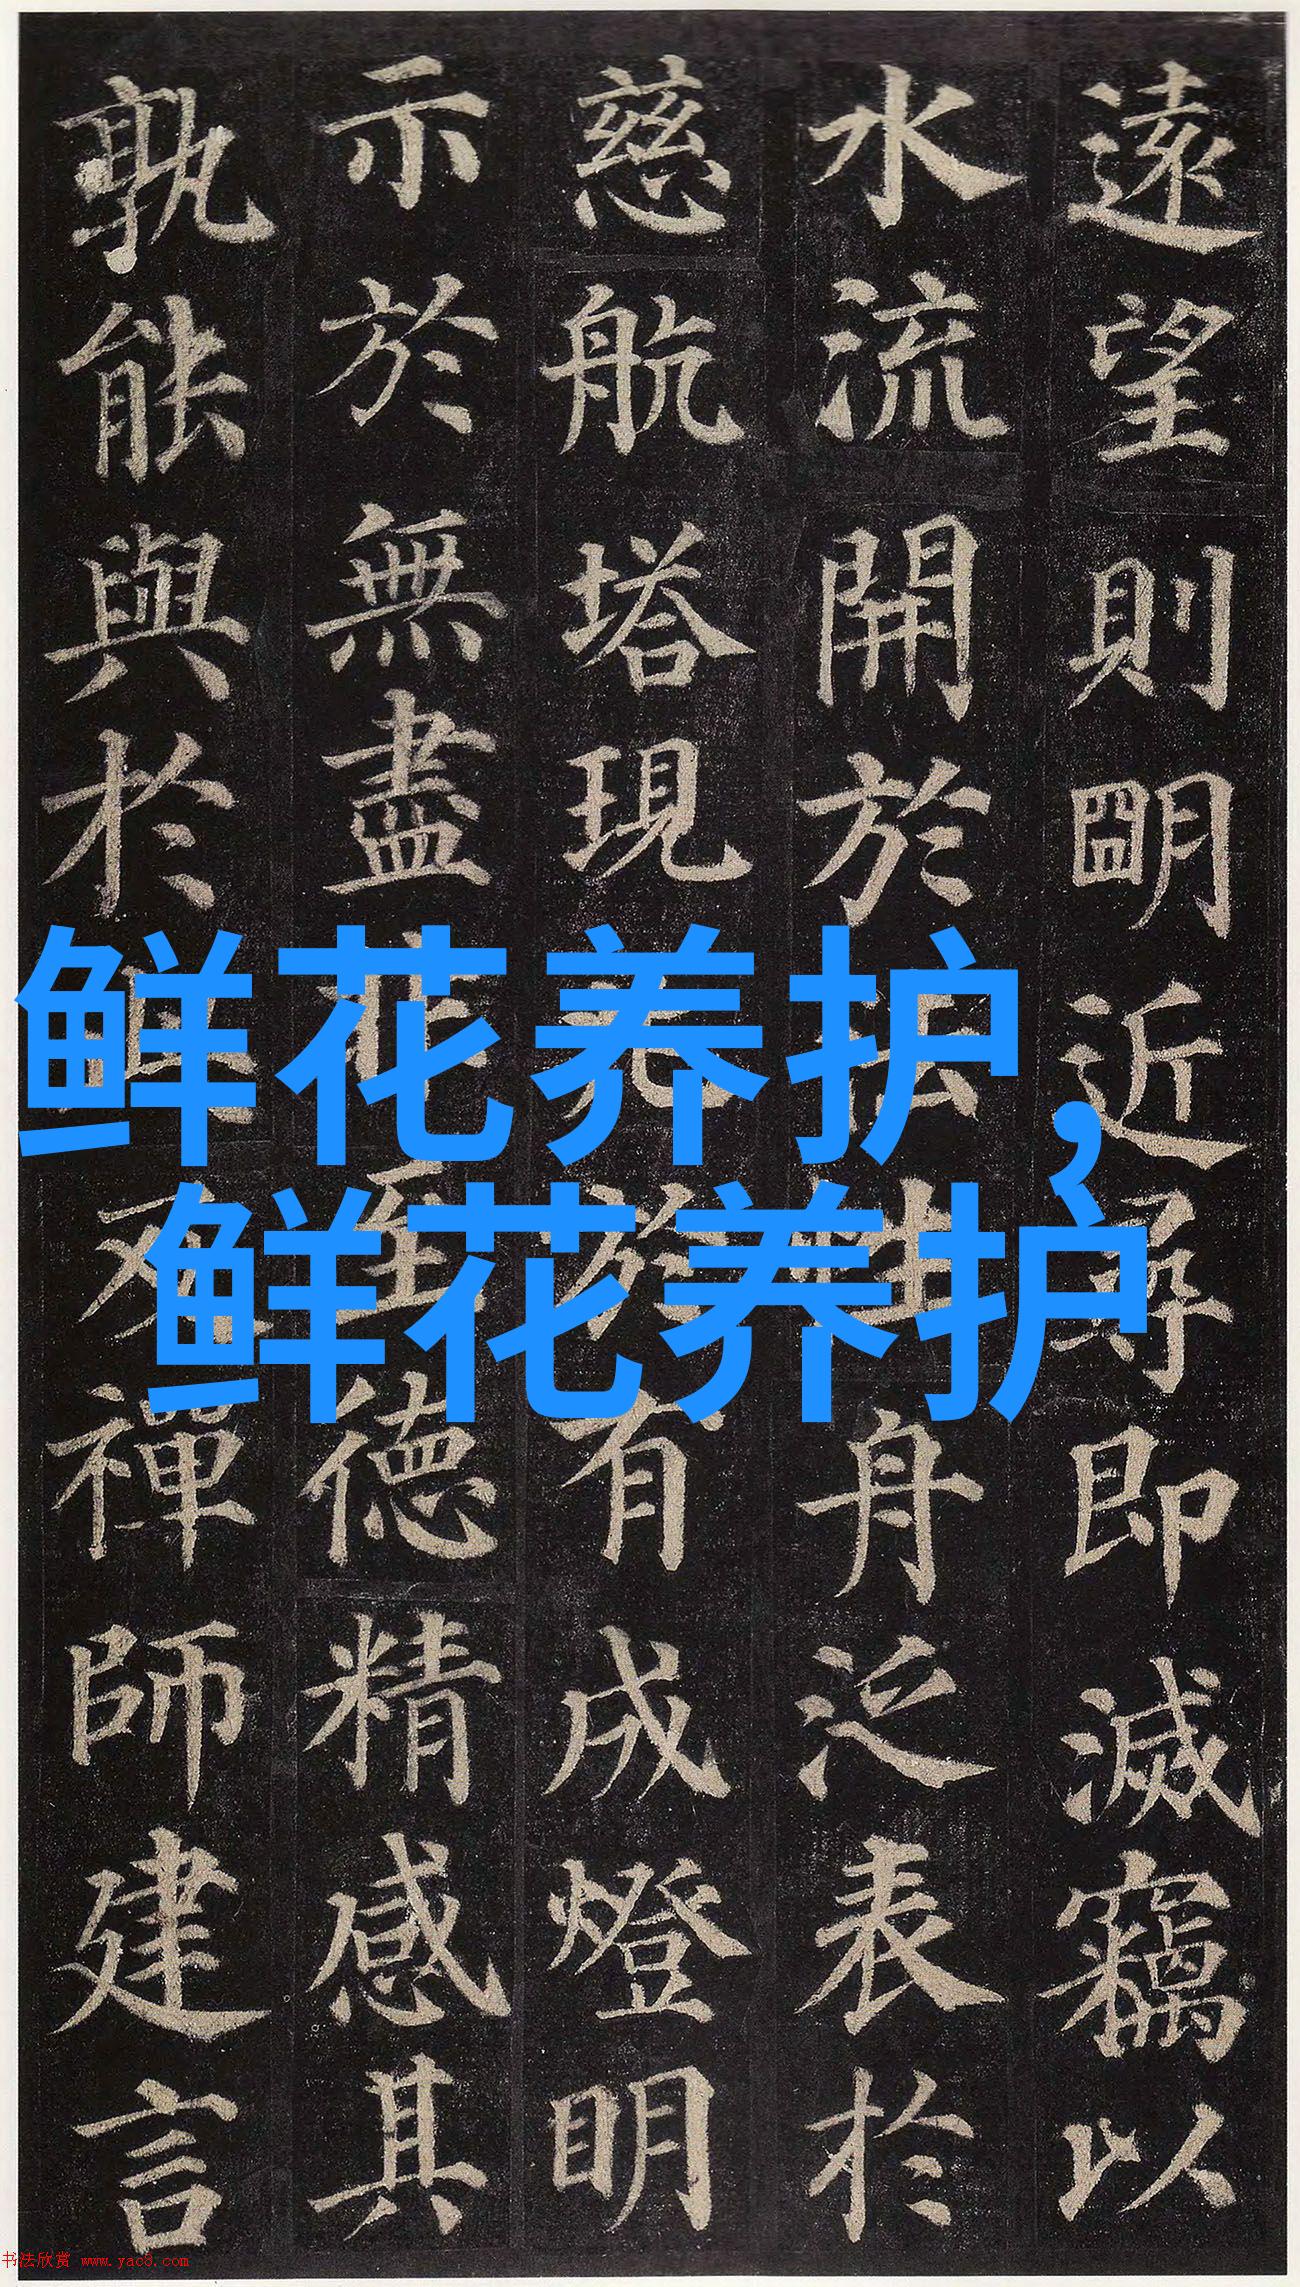 遠望則朙近尋即滅竊以
水流開於法性舟泛表於
慈航塔現兆於有成燈明
示於無盡非至德精感其
孰能與於及禪師建言
鲜花养护，
鲜花养护
书法欣赏 www.yac8.com